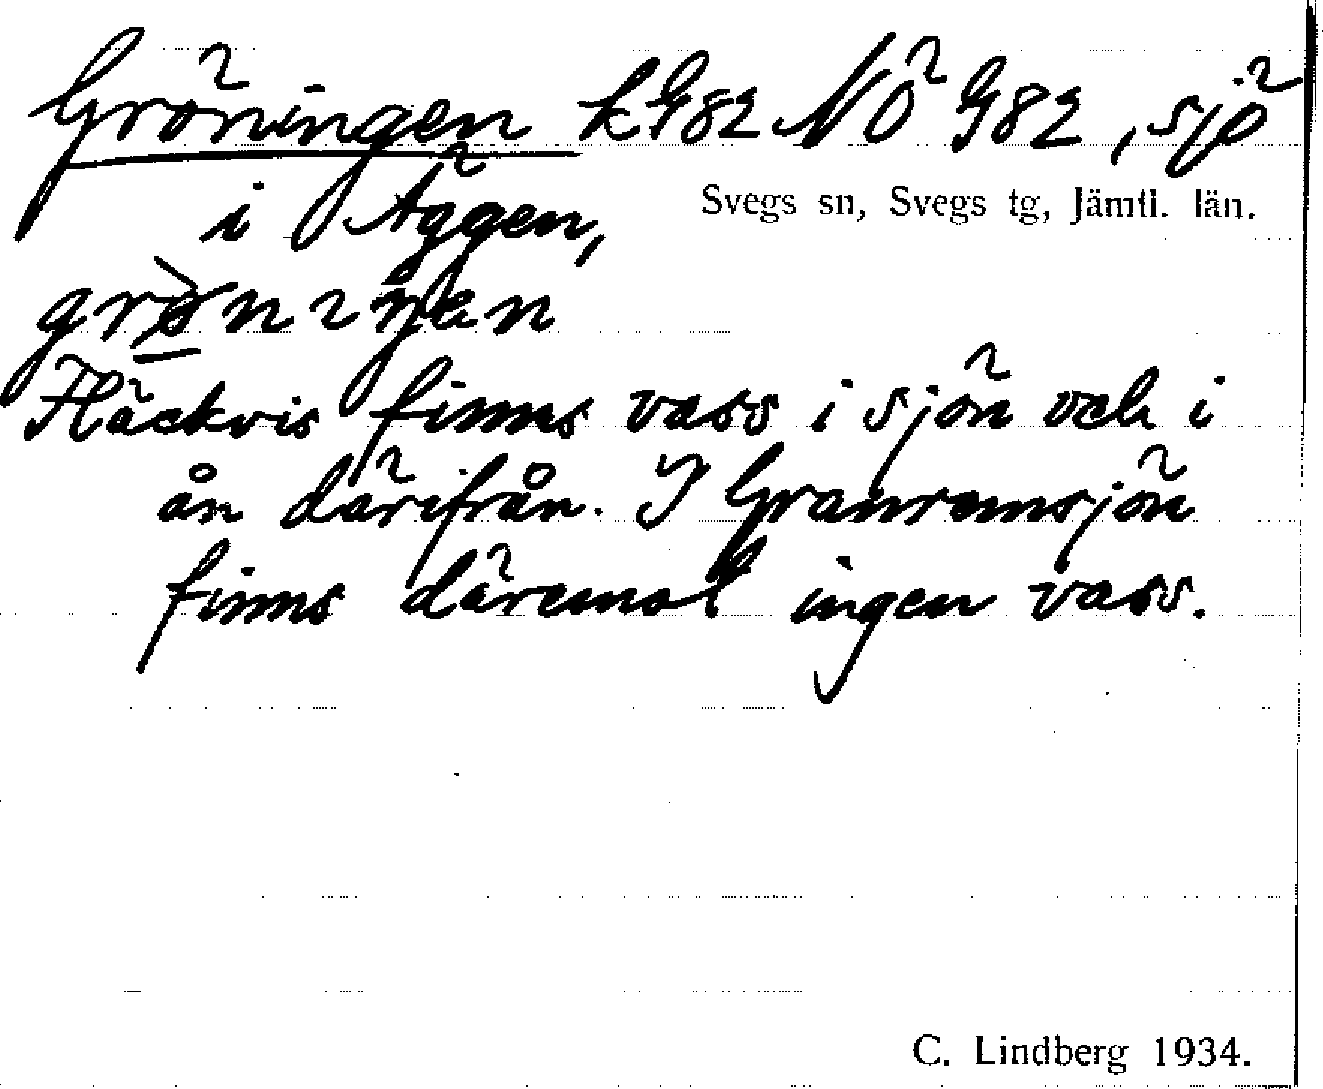 Gröningen k G82 NÖ G82, sjö
i Äggen,
Svegs sn, Svegs tg, Jämtl. län.
Fläckvis finns vass i sjön och i
ån därifrån. I Granremsjön
finns däremot ingen vass.
C. Lindberg 1934.